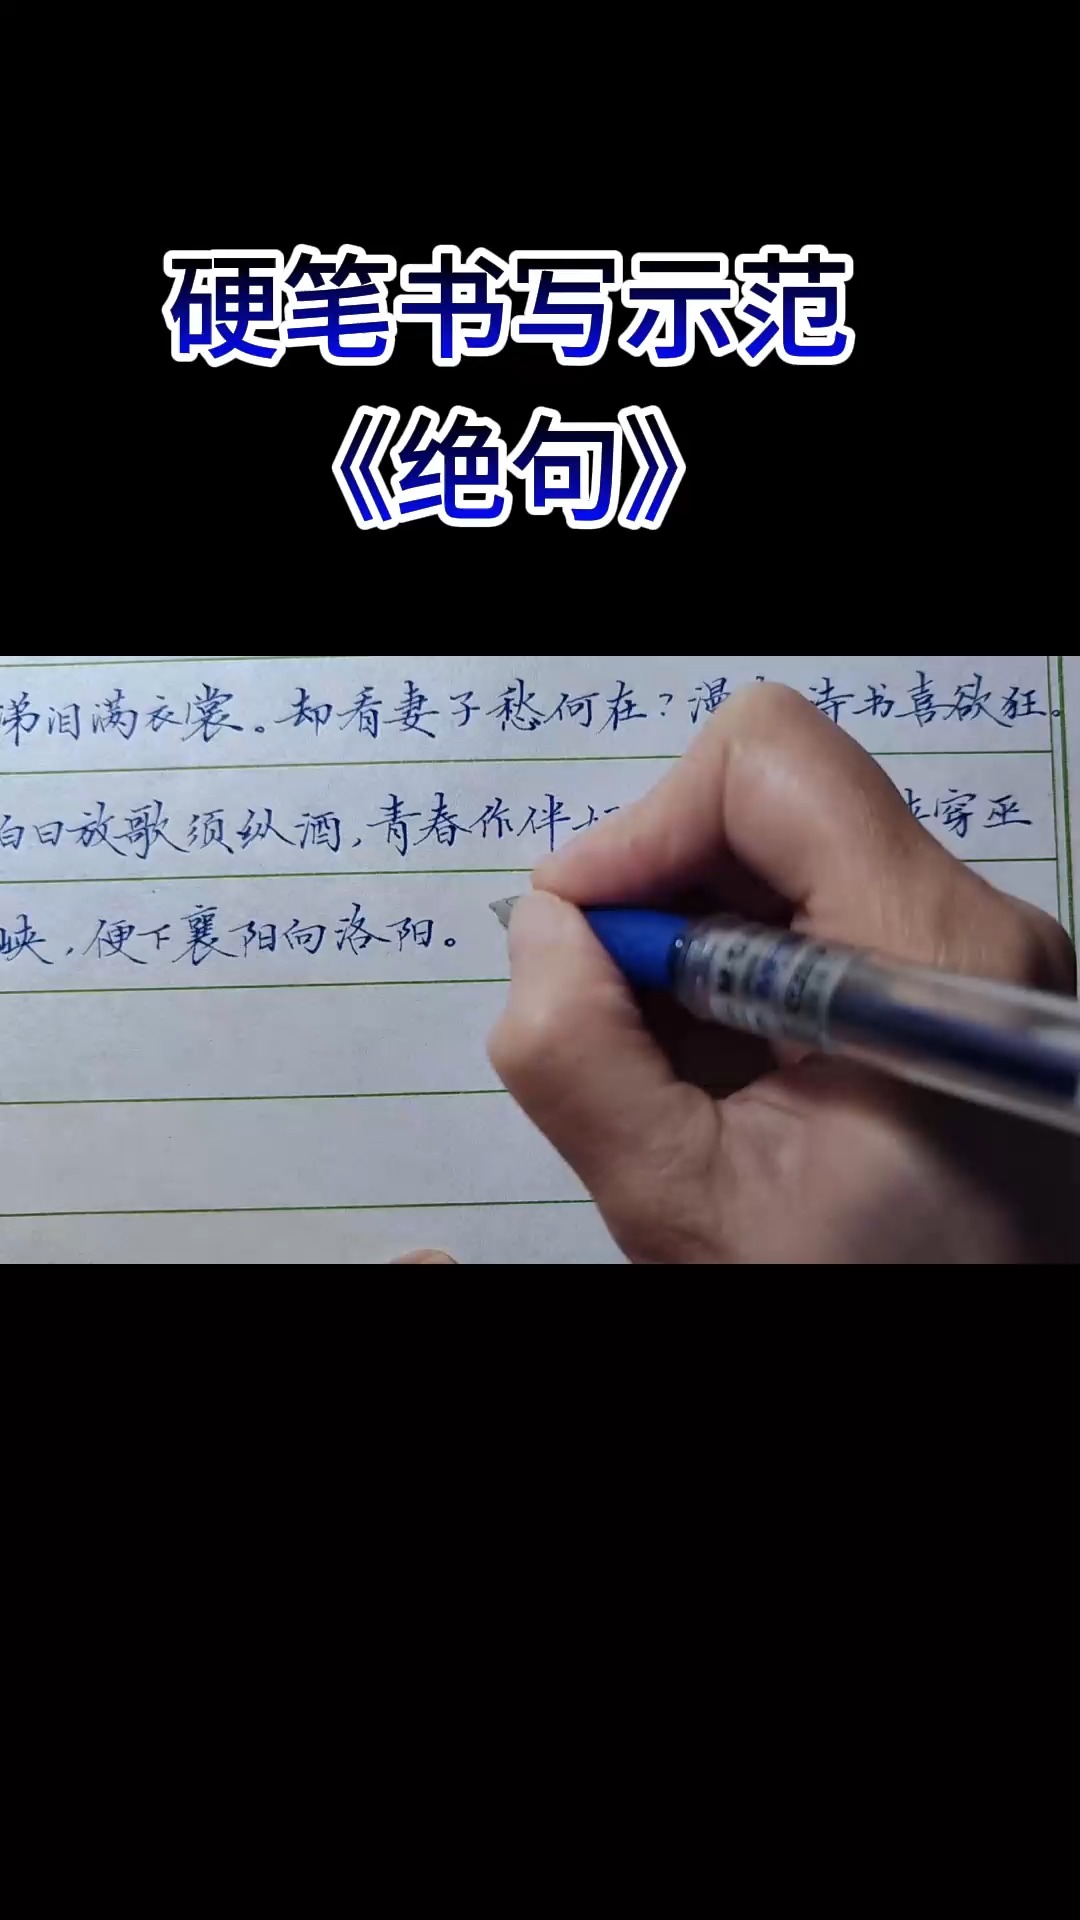 硬笔书写示范
《绝句》
涕泪满衣裳。却看妻子愁何在?漫诗书喜欲狂。
白日放歌须纵酒,青春作伴穿巫
峡,便下襄阳向洛阳。